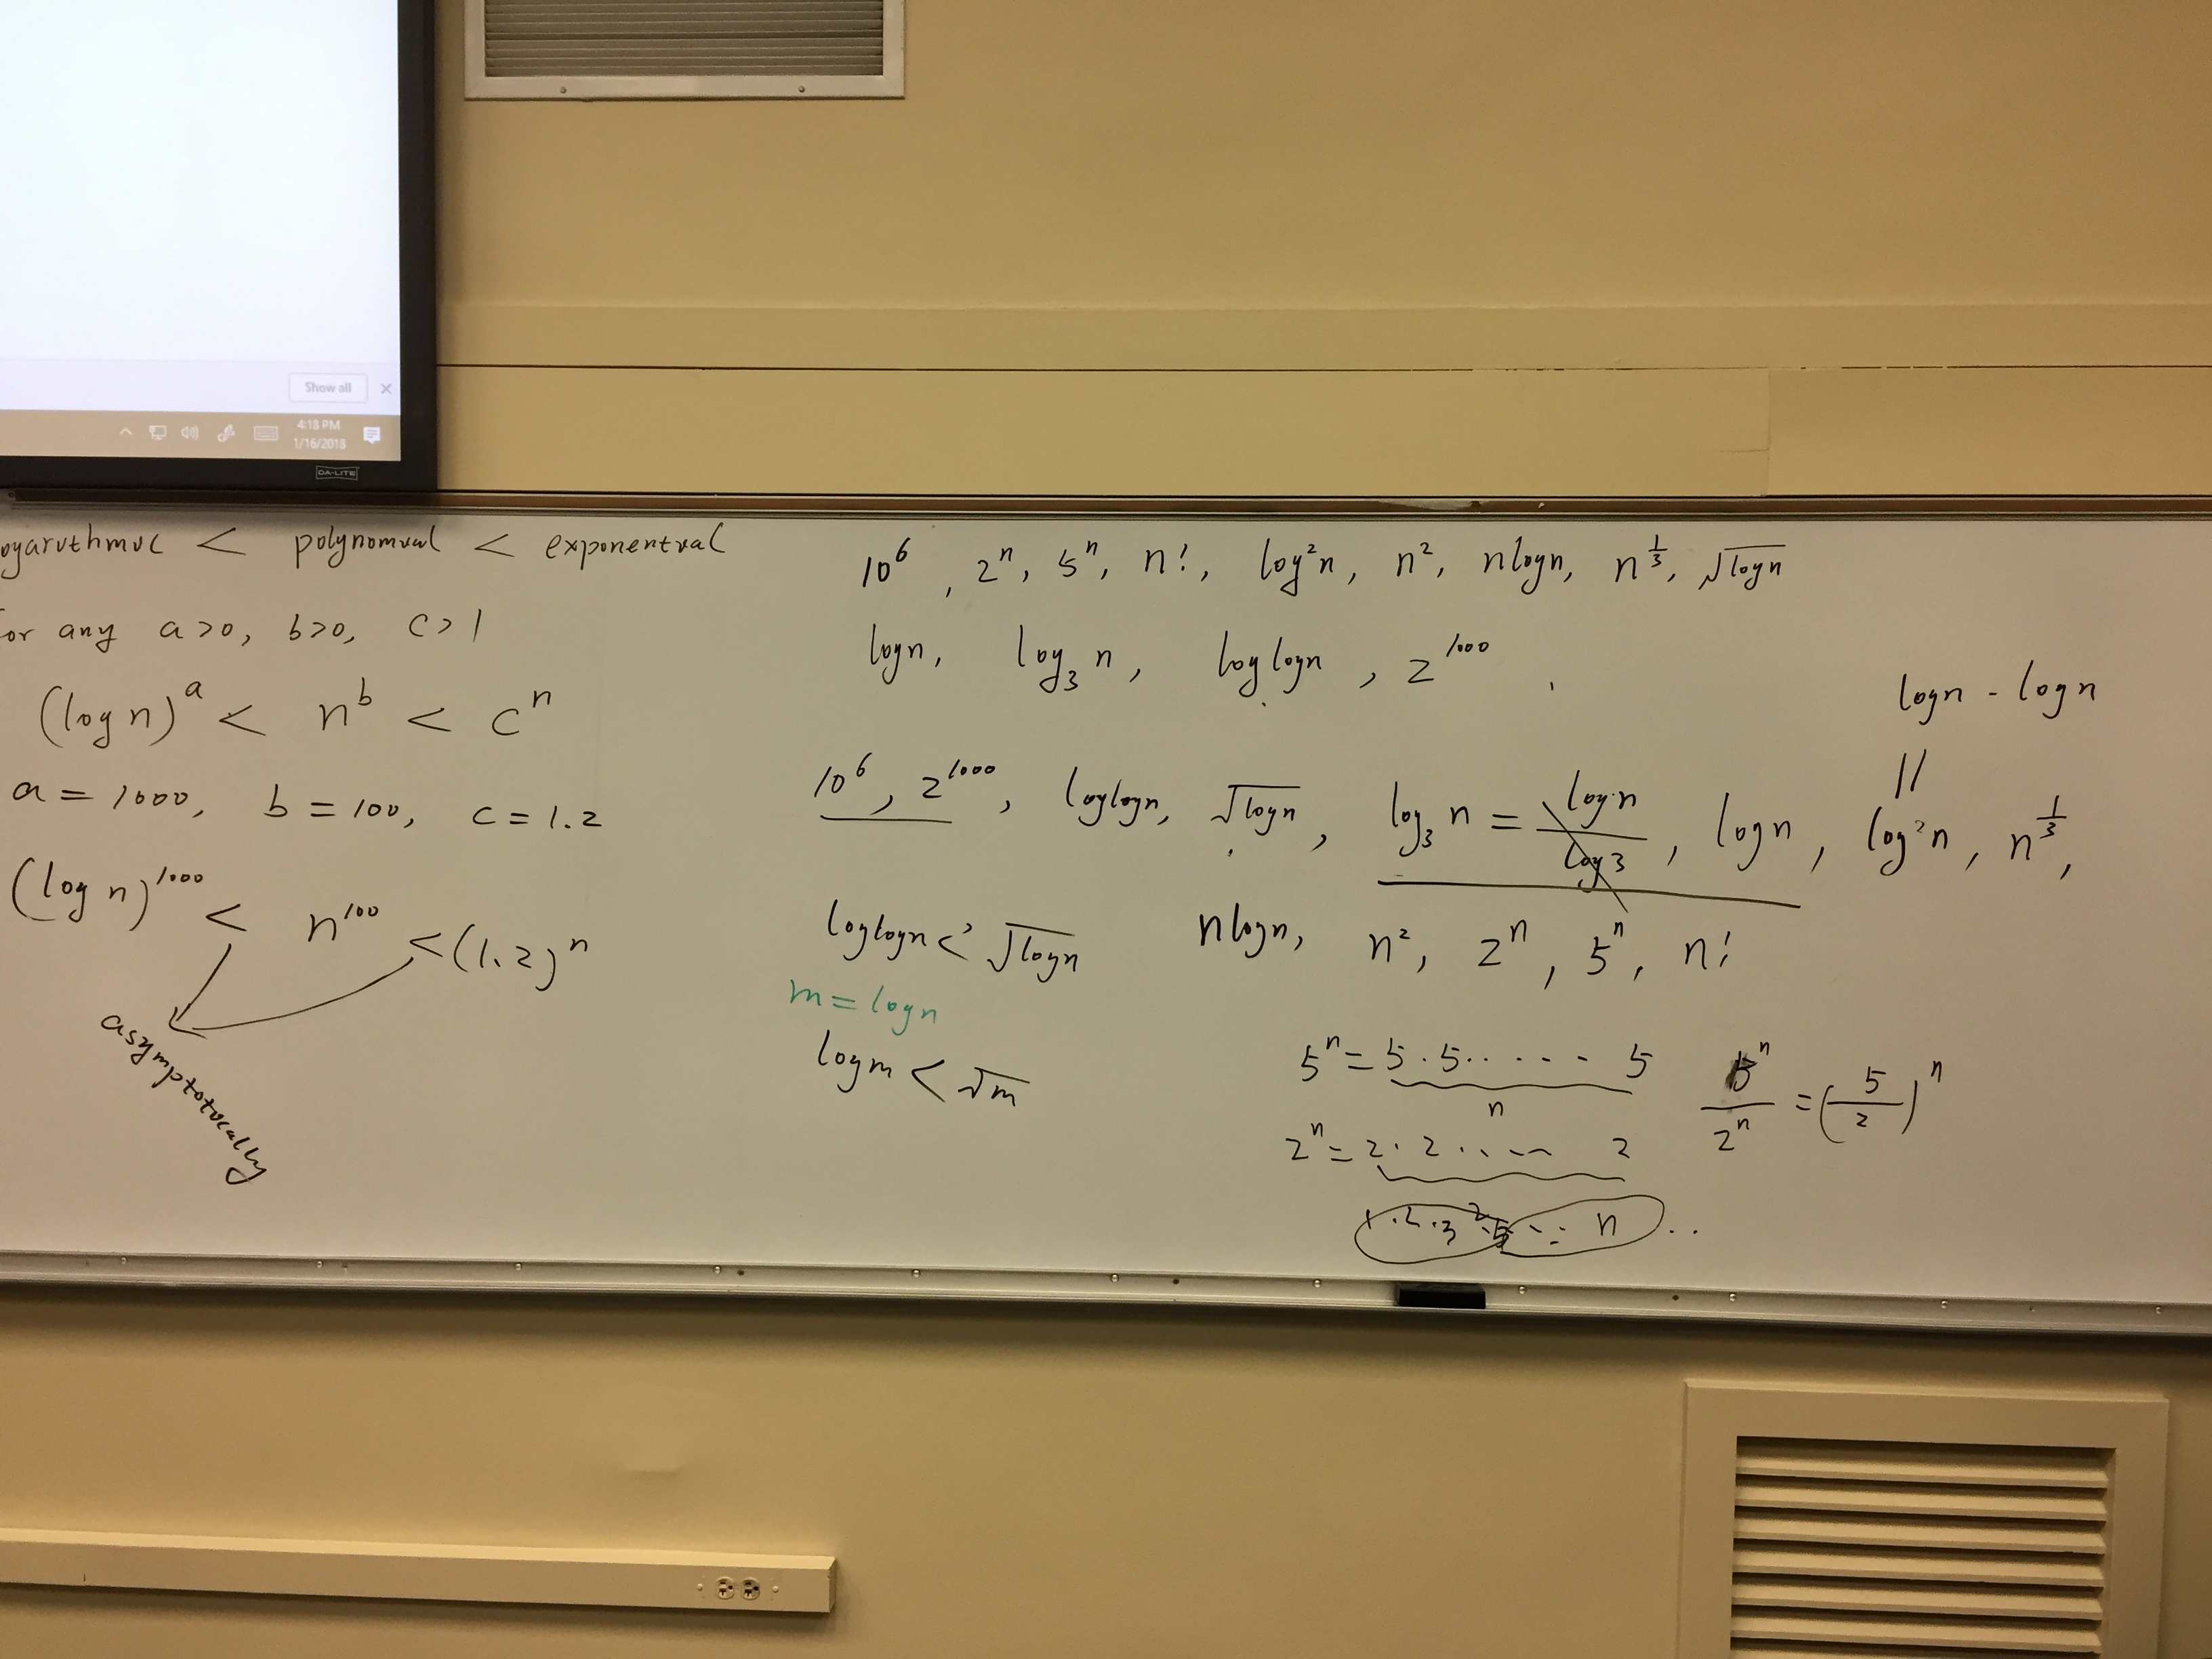 Show all
4:18 PM
1/16/2018
DA-LITE
ogarithmic < polynomial < exponential
or any a>0, b>0, c>1
(log n)^a < n^b < c^n
a = 1000, b = 100, c = 1.2
(log n)^1000 < n^100 < (1.2)^n
asymptotically
10^6, 2^n, 5^n, n!, log²n, n², nlogn, n^(1/3), √logn
logn, log₃ n, loglogn, 2^1000
logn - logn
||
10^6, 2^1000, loglogn, √logn, log₃ n = logn/log3, logn, log²n, n^(1/3),
nlogn, n², 2^n, 5^n, n!
loglogn < √logn
m = logn
logm < √m
5^n = 5 · 5 · · · · - 5
n
5^n/2^n = (5/2)^n
2^n = 2 · 2 · · - - 2
1 · 2 · 3 · 5 - - n ..